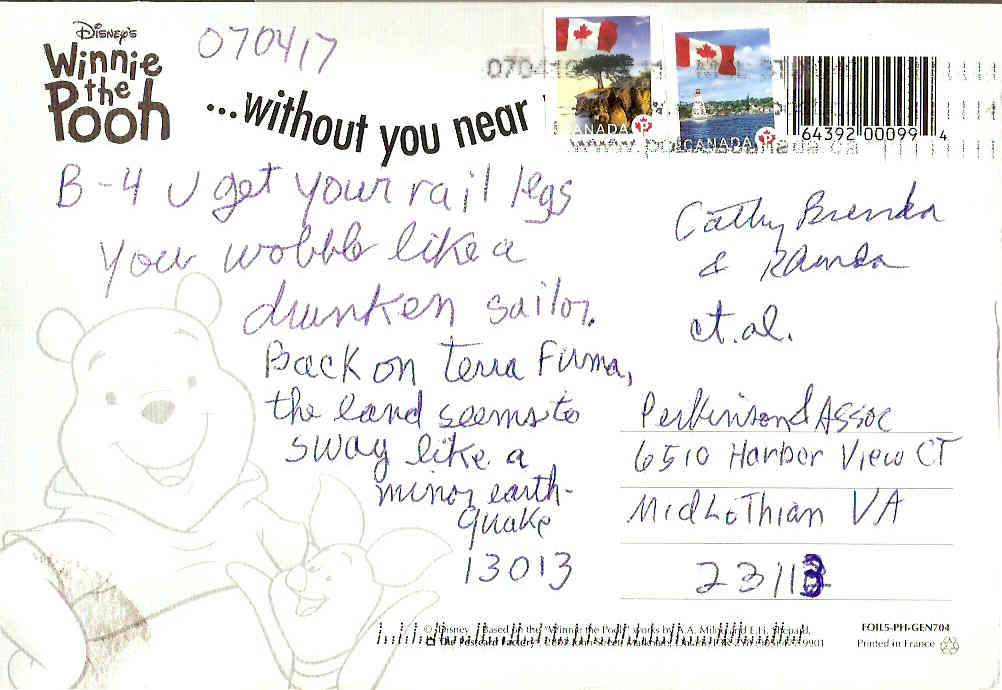 Disney's
Winnie
the
Pooh
070417
...without you near
CANADA P
CANADA P
64392 00099 4
B-4 U get your rail legs
you wobble like a
drunken sailor.
Back on terra Firma,
the land seems to
sway like a
minor earth-
quake
13013
Cathy Brenda
&
et. al.
Perkinson & Assoc
6510 Harbor View CT
MidLoThian VA
23113
© Disney Based on the "Winnie the Pooh" works by A.A. Milne and E.H. Shepard.
The Postcard Factory
FOIL5-PH-GEN704
Printed in France